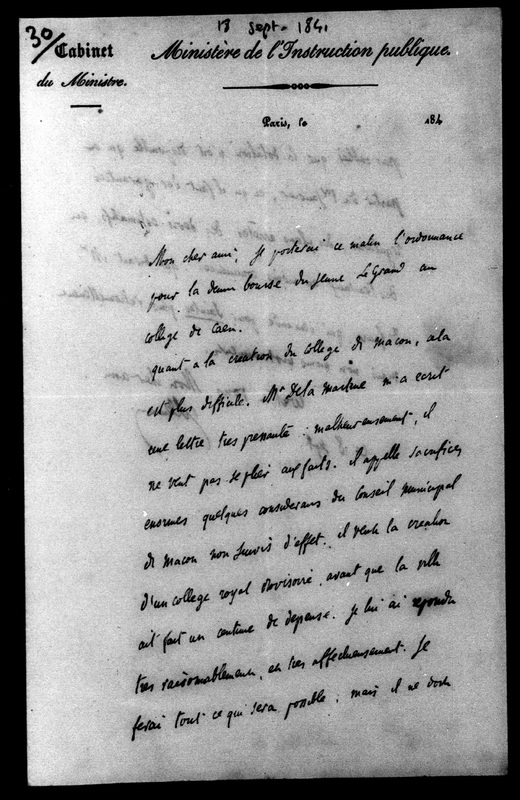 13 Sept. 1841
30/
Cabinet
du Ministre.
Ministère de l'Instruction publique.
Paris, le 184
Mon cher ami, je porterai ce matin l'ordonnance
pour la demi bourse du jeune LeGrand au
college de Caen.
quant a la creation du college de macon, cela
est plus difficile. Mr de la martine m'a ecrit
une lettre tres pressante : malheureusement, il
ne veut pas se plier aux faits. il appelle sacrifices
enormes quelques considerans du Conseil municipal
de macon non suivis d'effet. il veut la creation
d'un college royal provisoire, avant que la ville
ait fait un centime de depense. je lui ai repondu
tres raisonnablement, et tres affectueusement. je
ferai tout ce qui sera possible ; mais il ne doit